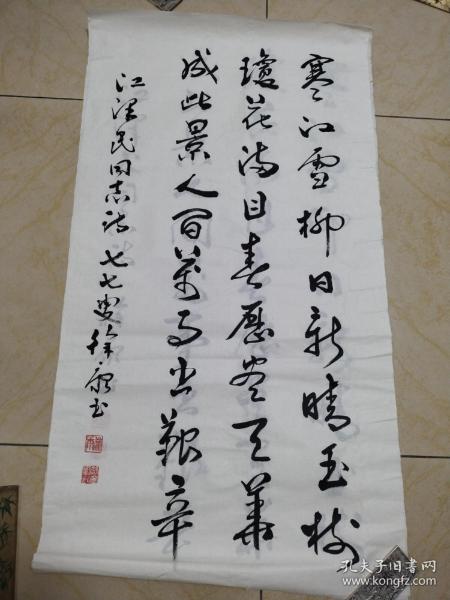 寒江雪柳日新晴玉树
琼花满目春历尽天华
成此景人间万事出艰辛
江泽民同志诗 七七叟徐康书
孔夫子旧书网
www.kongfz.com